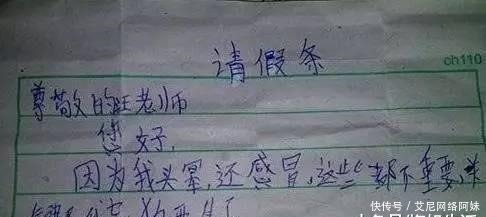 请假条
ch110
尊敬的旺老师
您好,
因为我头晕,还感冒,这些都不重要,关
狗要生了
快传号 / 艾尼网络阿妹